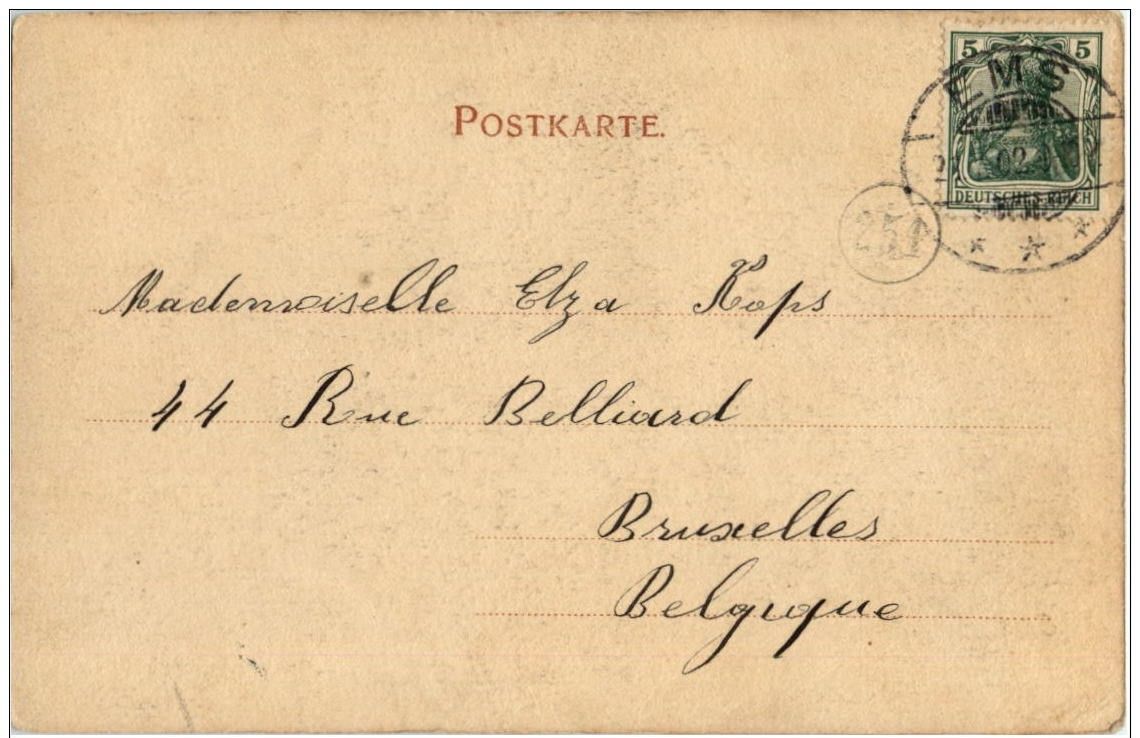 5 5
EMS
02
DEUTSCHES REICH
POSTKARTE.
251
Mademoiselle Elza Kops
44 Rue Belliard
Bruxelles
Belgique